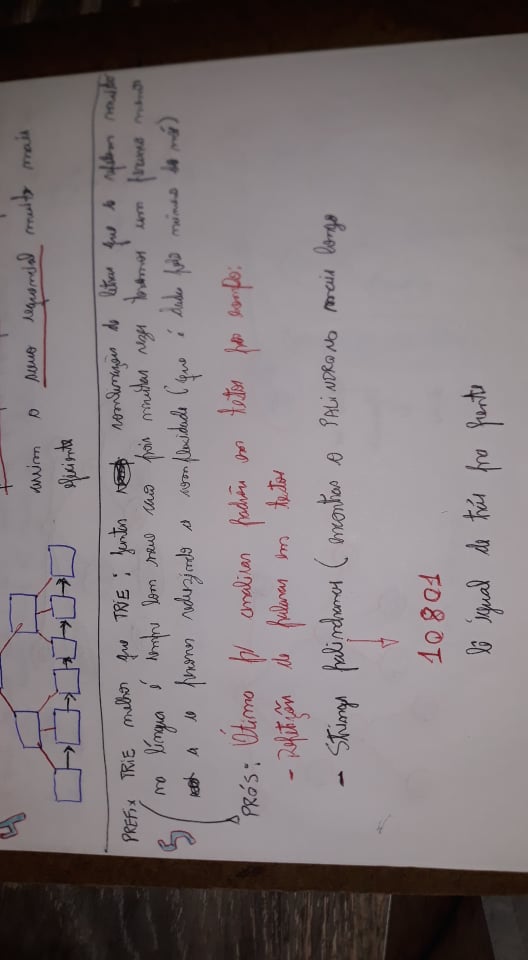 4
assim o acesso sequencial muito mais
eficiente
5
PREFIX TRIE melhor que TRIE: juntar combinação de letras que se repetem muito
na língua é sempre bom nesse caso pois muitas vezes teremos um percurso menor
a se percorrer reduzindo a complexidade (que é dada pelo número de nós)
PRÓS: Ótimo p/ analisar padrão em textos por exemplo:
- Repetição de palavras em textos
- Strings palindromos (encontrar o PALINDROMO mais longo
10801
lê igual de trás pra frente